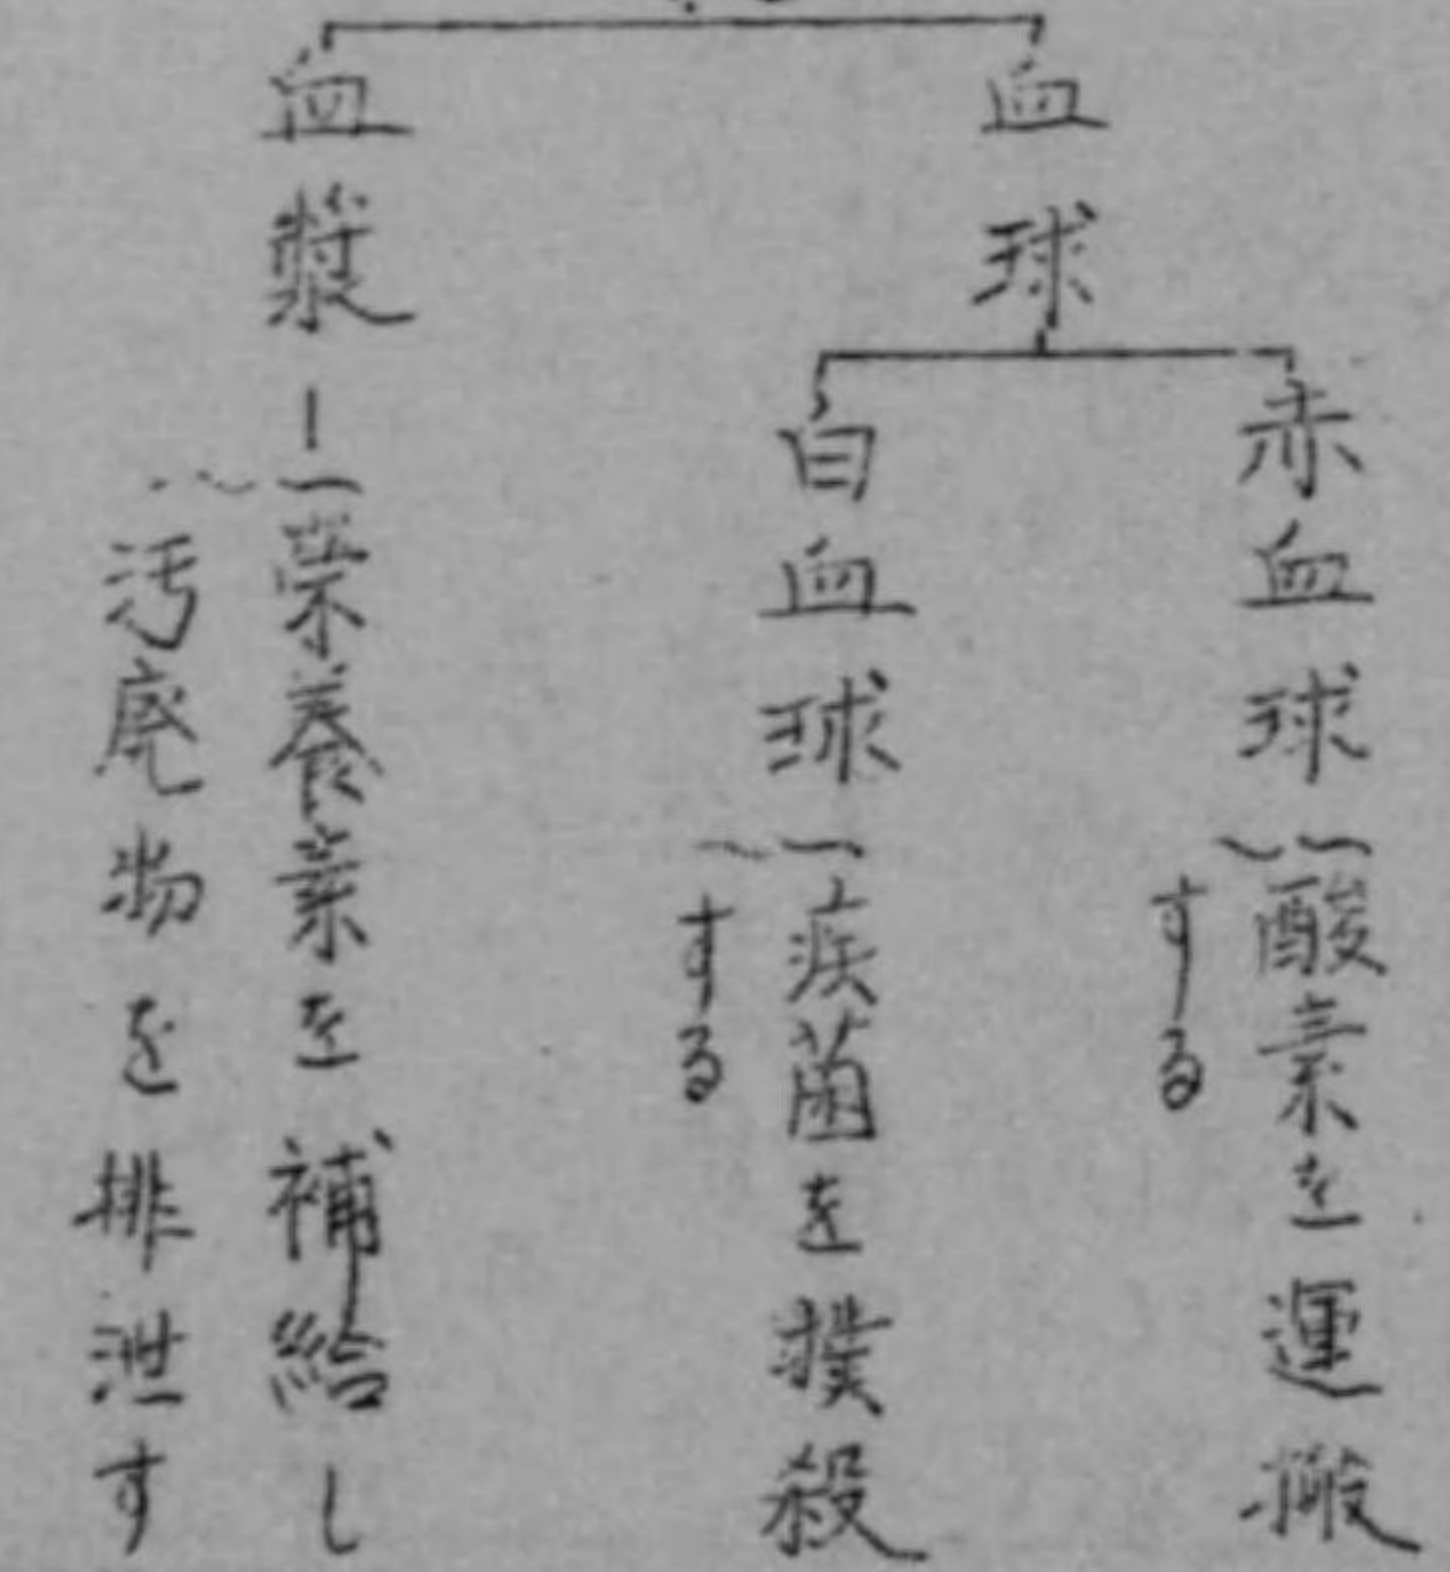 血球
赤血球
酸素を運搬
する
白血球
疾菌を撲殺
する
血漿
栄養素を補給し
汚廃物を排泄す